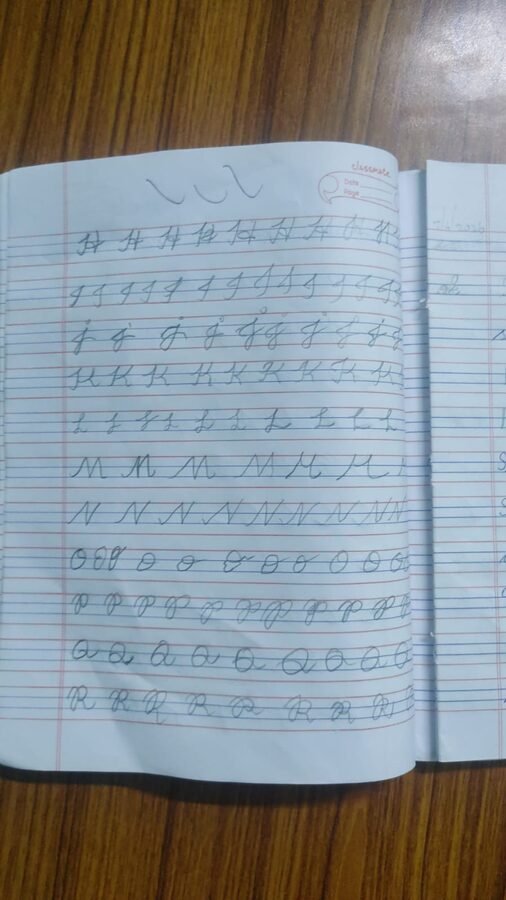 classmate
Date
Page
H H H H H H H H H
I I I I I I I I I I I I I
j j j j j j j j j j
K K K K K K K K K
L L L L L L L L L L
M M M M M M
N N N N N N N N N
O O O O O O O O O O O
P P P P P P P P P
Q Q Q Q Q Q Q Q Q
R R R R R R R R